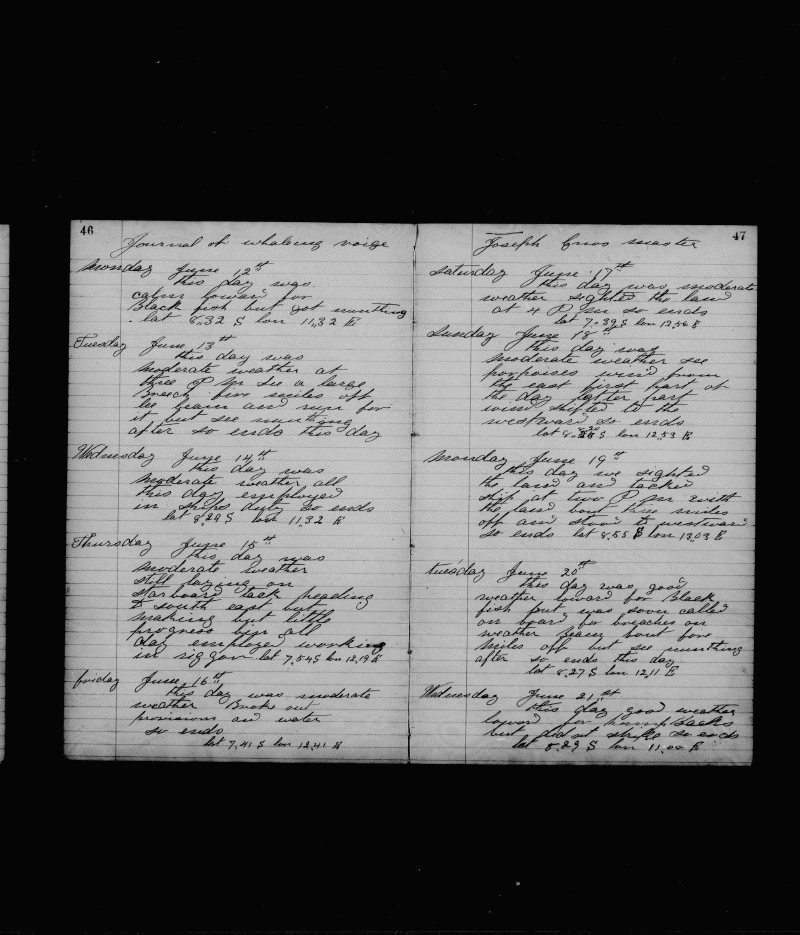 46
Journal of whaleing voige
Monday June 12th
this day was
calm loward for
Black fish but got numthing
lat 8,32 S lon 11,32 E
Tuesday June 13th
this day was
moderate weather at
three P M see a large
Breech five miles off
lee beam and run for
it but see numthing
after so ends this day
Wednesday June 14th
this day was
moderate weather all
this day employed
in ships duty so ends
lat 8,29 S lon 11,32 E
Thursday June 15th
this day was
moderate weather
still laying on
starboard tack heading
to south east but
making but little
progress all
day employed working
in lat 7,54 S lon 12,19 E
friday June 16th
this day was moderate
weather Broke out
provisions and water
so ends
lat 7,41 S lon 12,41 E
47
Joseph Enos master
Saturday June 17th
this day was moderate
weather sighted the land
at 4 P M so ends
lat 7,39 S lon 12,56 E
Sunday June 18th
this day was
moderate weather see
porpoises wind from
the east first part of
the day latter part
wind shifted to the
westward so ends
lon 12,53 E
Monday June 19th
this day we sighted
the land and tacked
ship at two P M with
the land bout three miles
off and stood to westward
so ends lat 8,55 S lon 13,03 E
tuesday June 20th
this day was good
weather loward for Black
fish but was soon called
on board for breaches on
weather beam bout four
miles off but see numthing
after so ends this day
lat 8,27 S lon 12,11 E
Wednesday June 21st
this day good weather
loward for humpbacks
but did not strike so ends
lat 8,29 S lon 11,00 E